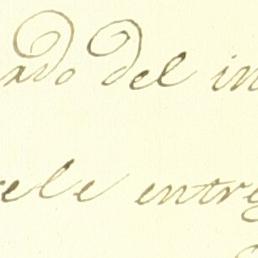 ado del in
rele entre